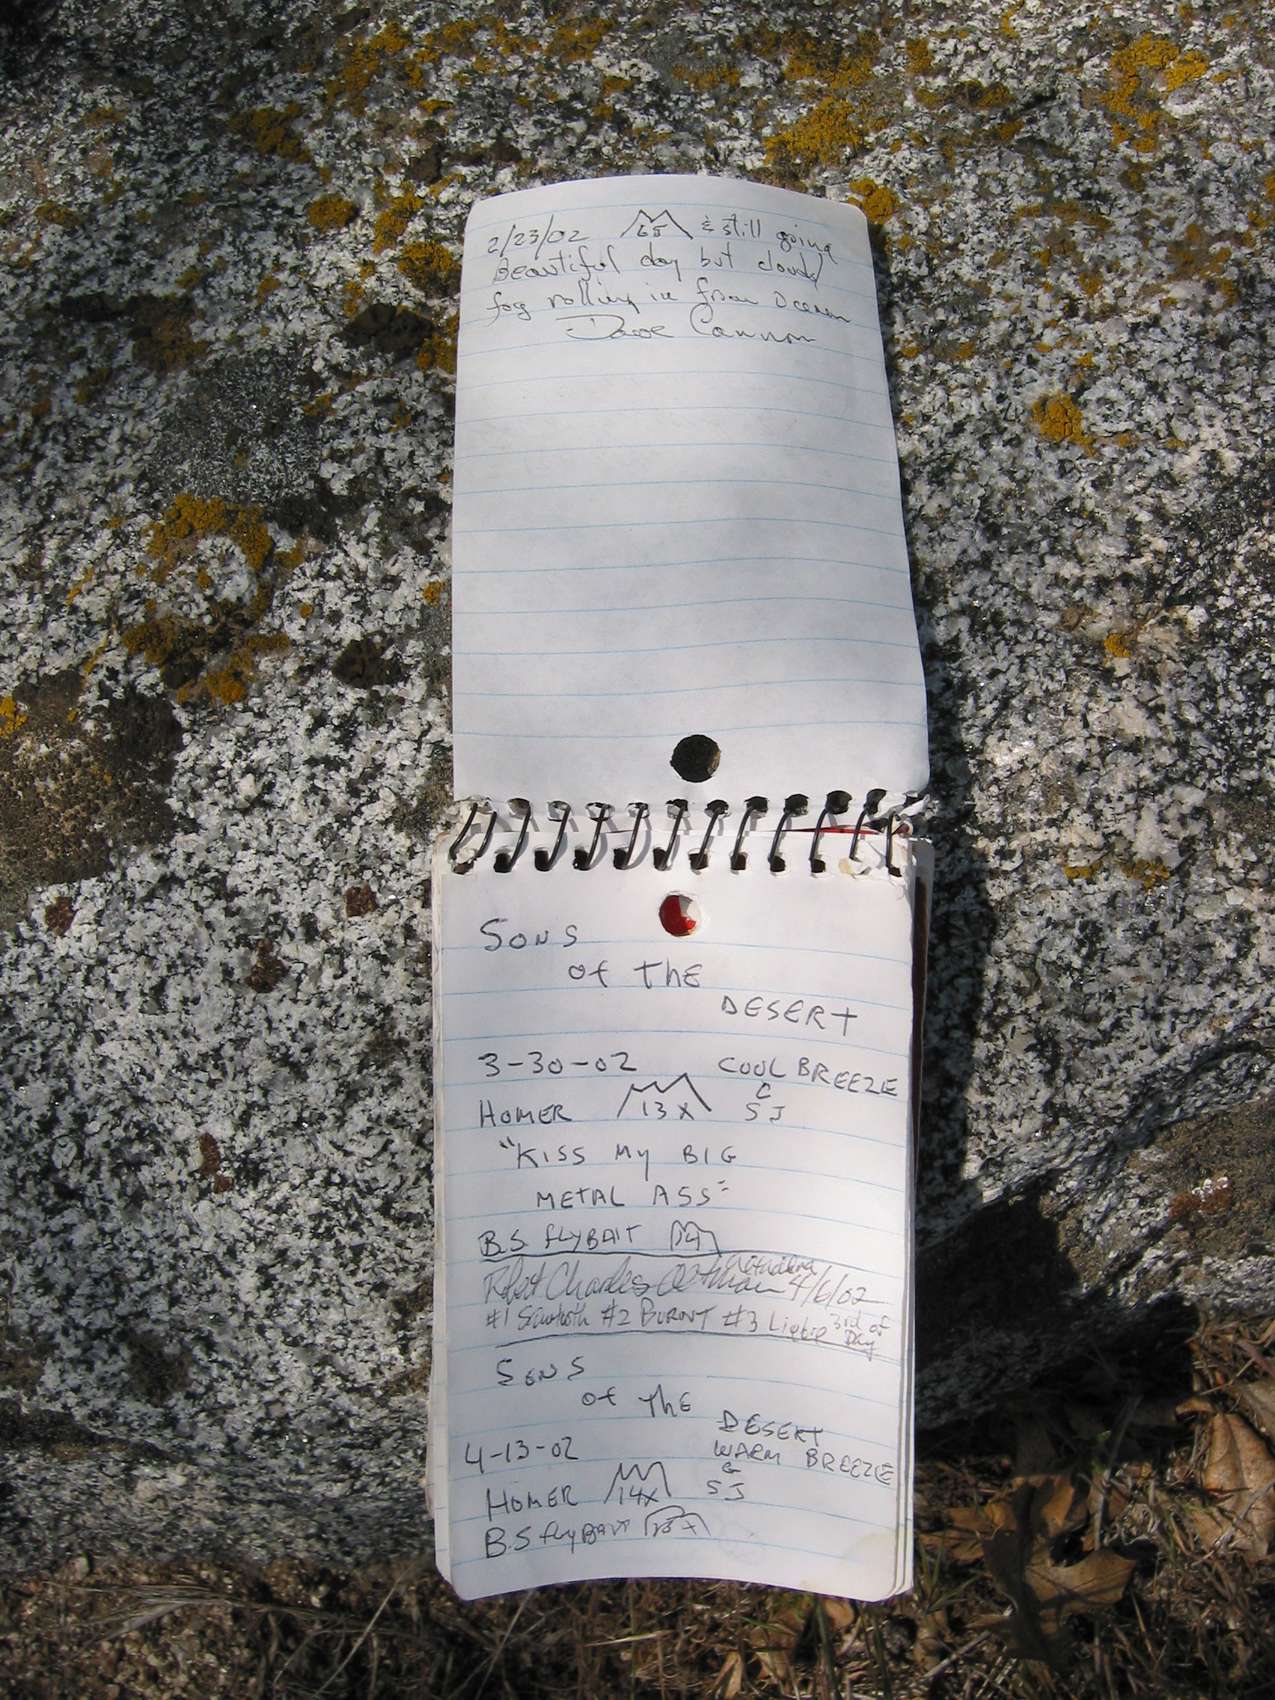 2/23/02 65 & still going
Beautiful day but clouds/
fog rolling in from Ocean
Dave Cannon
SONS
of the
DESERT
3-30-02 COOL BREEZE
HOMER 13 X SJ
"KISS MY BIG
METAL ASS"
B.S. flyBAIT
Robert Charles 4/6/02
#1 Sawtooth #2 BURNT #3 3rd of
Day
SONS
of the
DESERT
4-13-02 WARM BREEZE
HOMER 14x SJ
B.S flyBAIT